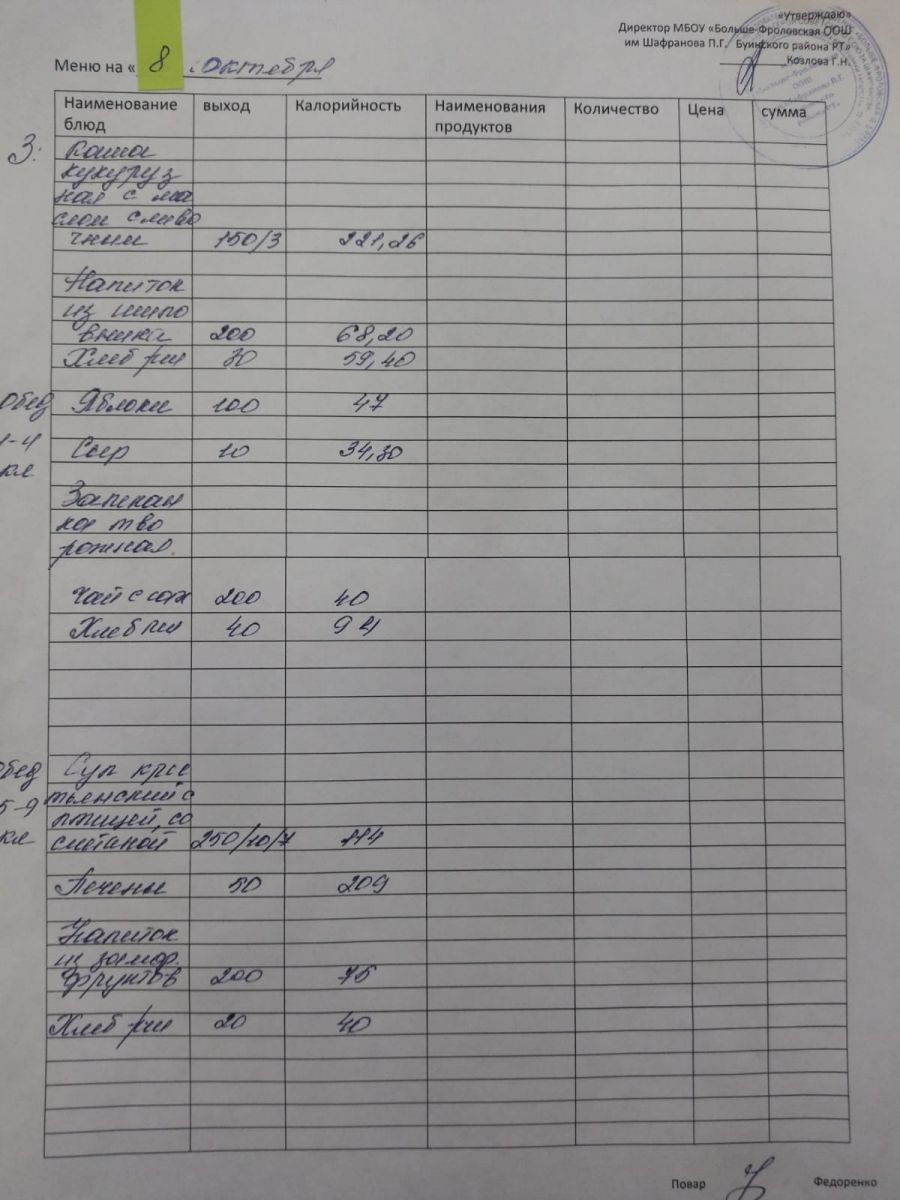 «Утверждаю»
Директор МБОУ «Больше-Фроловская ООШ
им Шафранова П.Г. Буинского района РТ»
Козлова Г.Н.
Меню на « 8 » Октября
Наименование блюд выход Калорийность Наименования продуктов Количество Цена сумма
З: Каша
кукуруз
ная с ма
слом сливо
чным 150/3 221,26
Напиток
из шипо
вника 200 68,20
Хлеб рж 30 59,40
Обед Яблоки 100 47
1-4
кл Сыр 10 34,30
Запекан
ка тво
рожная
Чай с сах 200 40
Хлеб рж 40 94
Обед Суп крес
5-9 тьянский с
птицей, со
кл сметаной 250/10/7 114
Печень 50 209
Напиток
из замор.
фруктов 200 75
Хлеб рж 20 40
Повар Федоренко